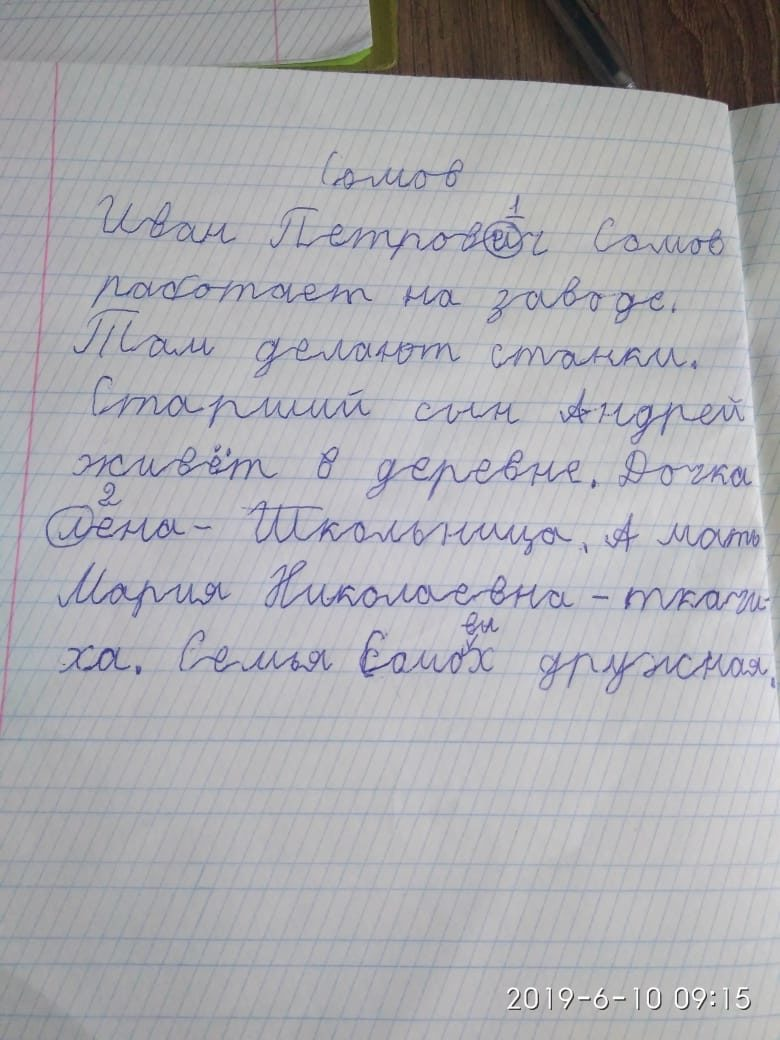 Сомов
1
Иван Петрович Сомов
работает на заводе.
Там делают станки.
Старший сын Андрей
живёт в деревне. Дочка
2
лена - Школьница. А мать
Мария Николаевна - ткачи-
вы
ха. Семья Сомох дружная.
2019-6-10 09:15